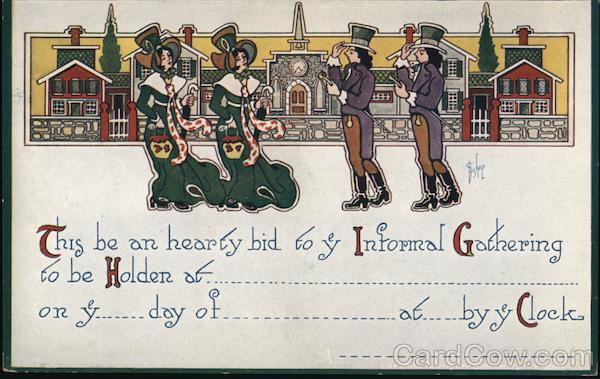 This be an hearty bid to ẏ Informal Gathering
to be Holden at
on ẏ day of at by ẏ Clock
CardCow.com